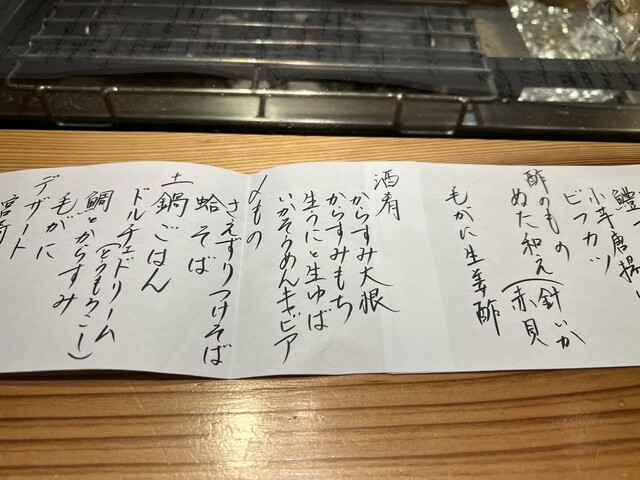 小芋唐揚げ
ビフカツ
酢のもの
ぬた和え(針いか
赤貝
毛がに生姜酢
酒肴
からすみ大根
からすみもち
生うにと生ゆば
いかそうめんキャビア
〆もの
さえずりつけそば
蛤そば
土鍋ごはん
ドルチェドリーム
(とうもろこし)
鯛とからすみ
毛がに
デザート